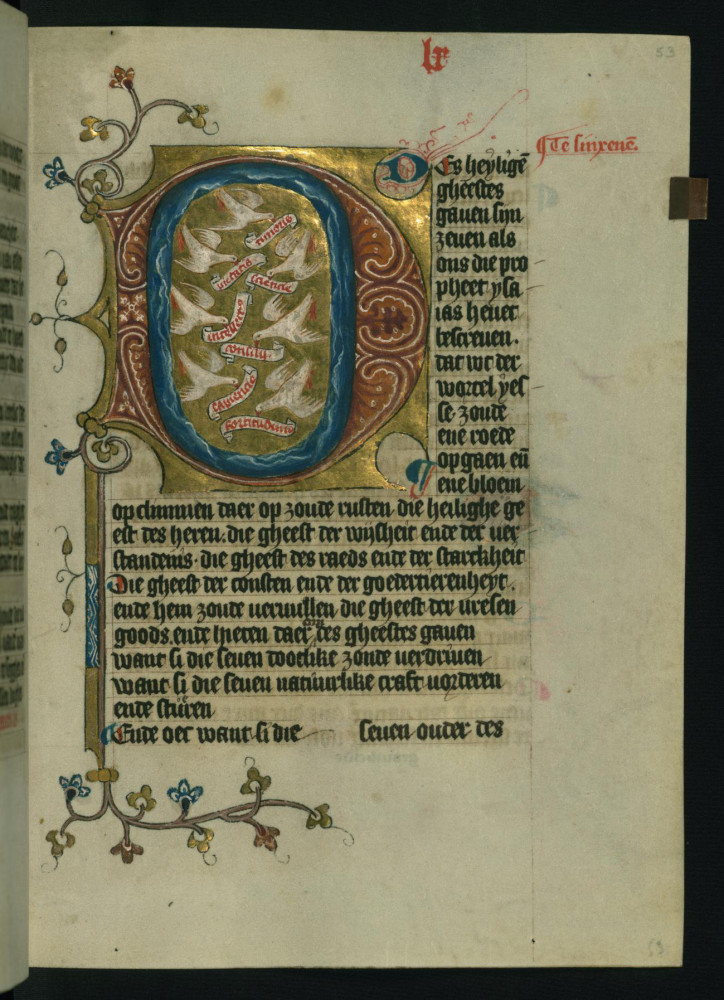 lx
53
¶ Te sinxenē.
Des heylige̅
gheestes
gauen syn
zeuen als
ons die pro
pheet ysa
ias heuet
bescreuen.
dat wt der
wortel yes
se zoude
ene roede
opgaen en̄
ene bloem
timoris
pietatis
sciencie
intellectus
consilij
sapiencie
fortitudinis
opclimmen daer op zoude rusten die heilighe ge
est des heren. die gheest der wijsheit ende der uer
standenis. die gheest des raeds ende der starckheit
Die gheest der consten ende der goedertierenheyt.
ende hem zoude ueruullen die gheest der uresen
goods. ende hieten daer des gheestes gauen
want si die seuen dootlike zonde uerdriuen
want si die seuen natuurlike craft uorderen
ende sturen
Ende oec want si die seuen ouder des
53